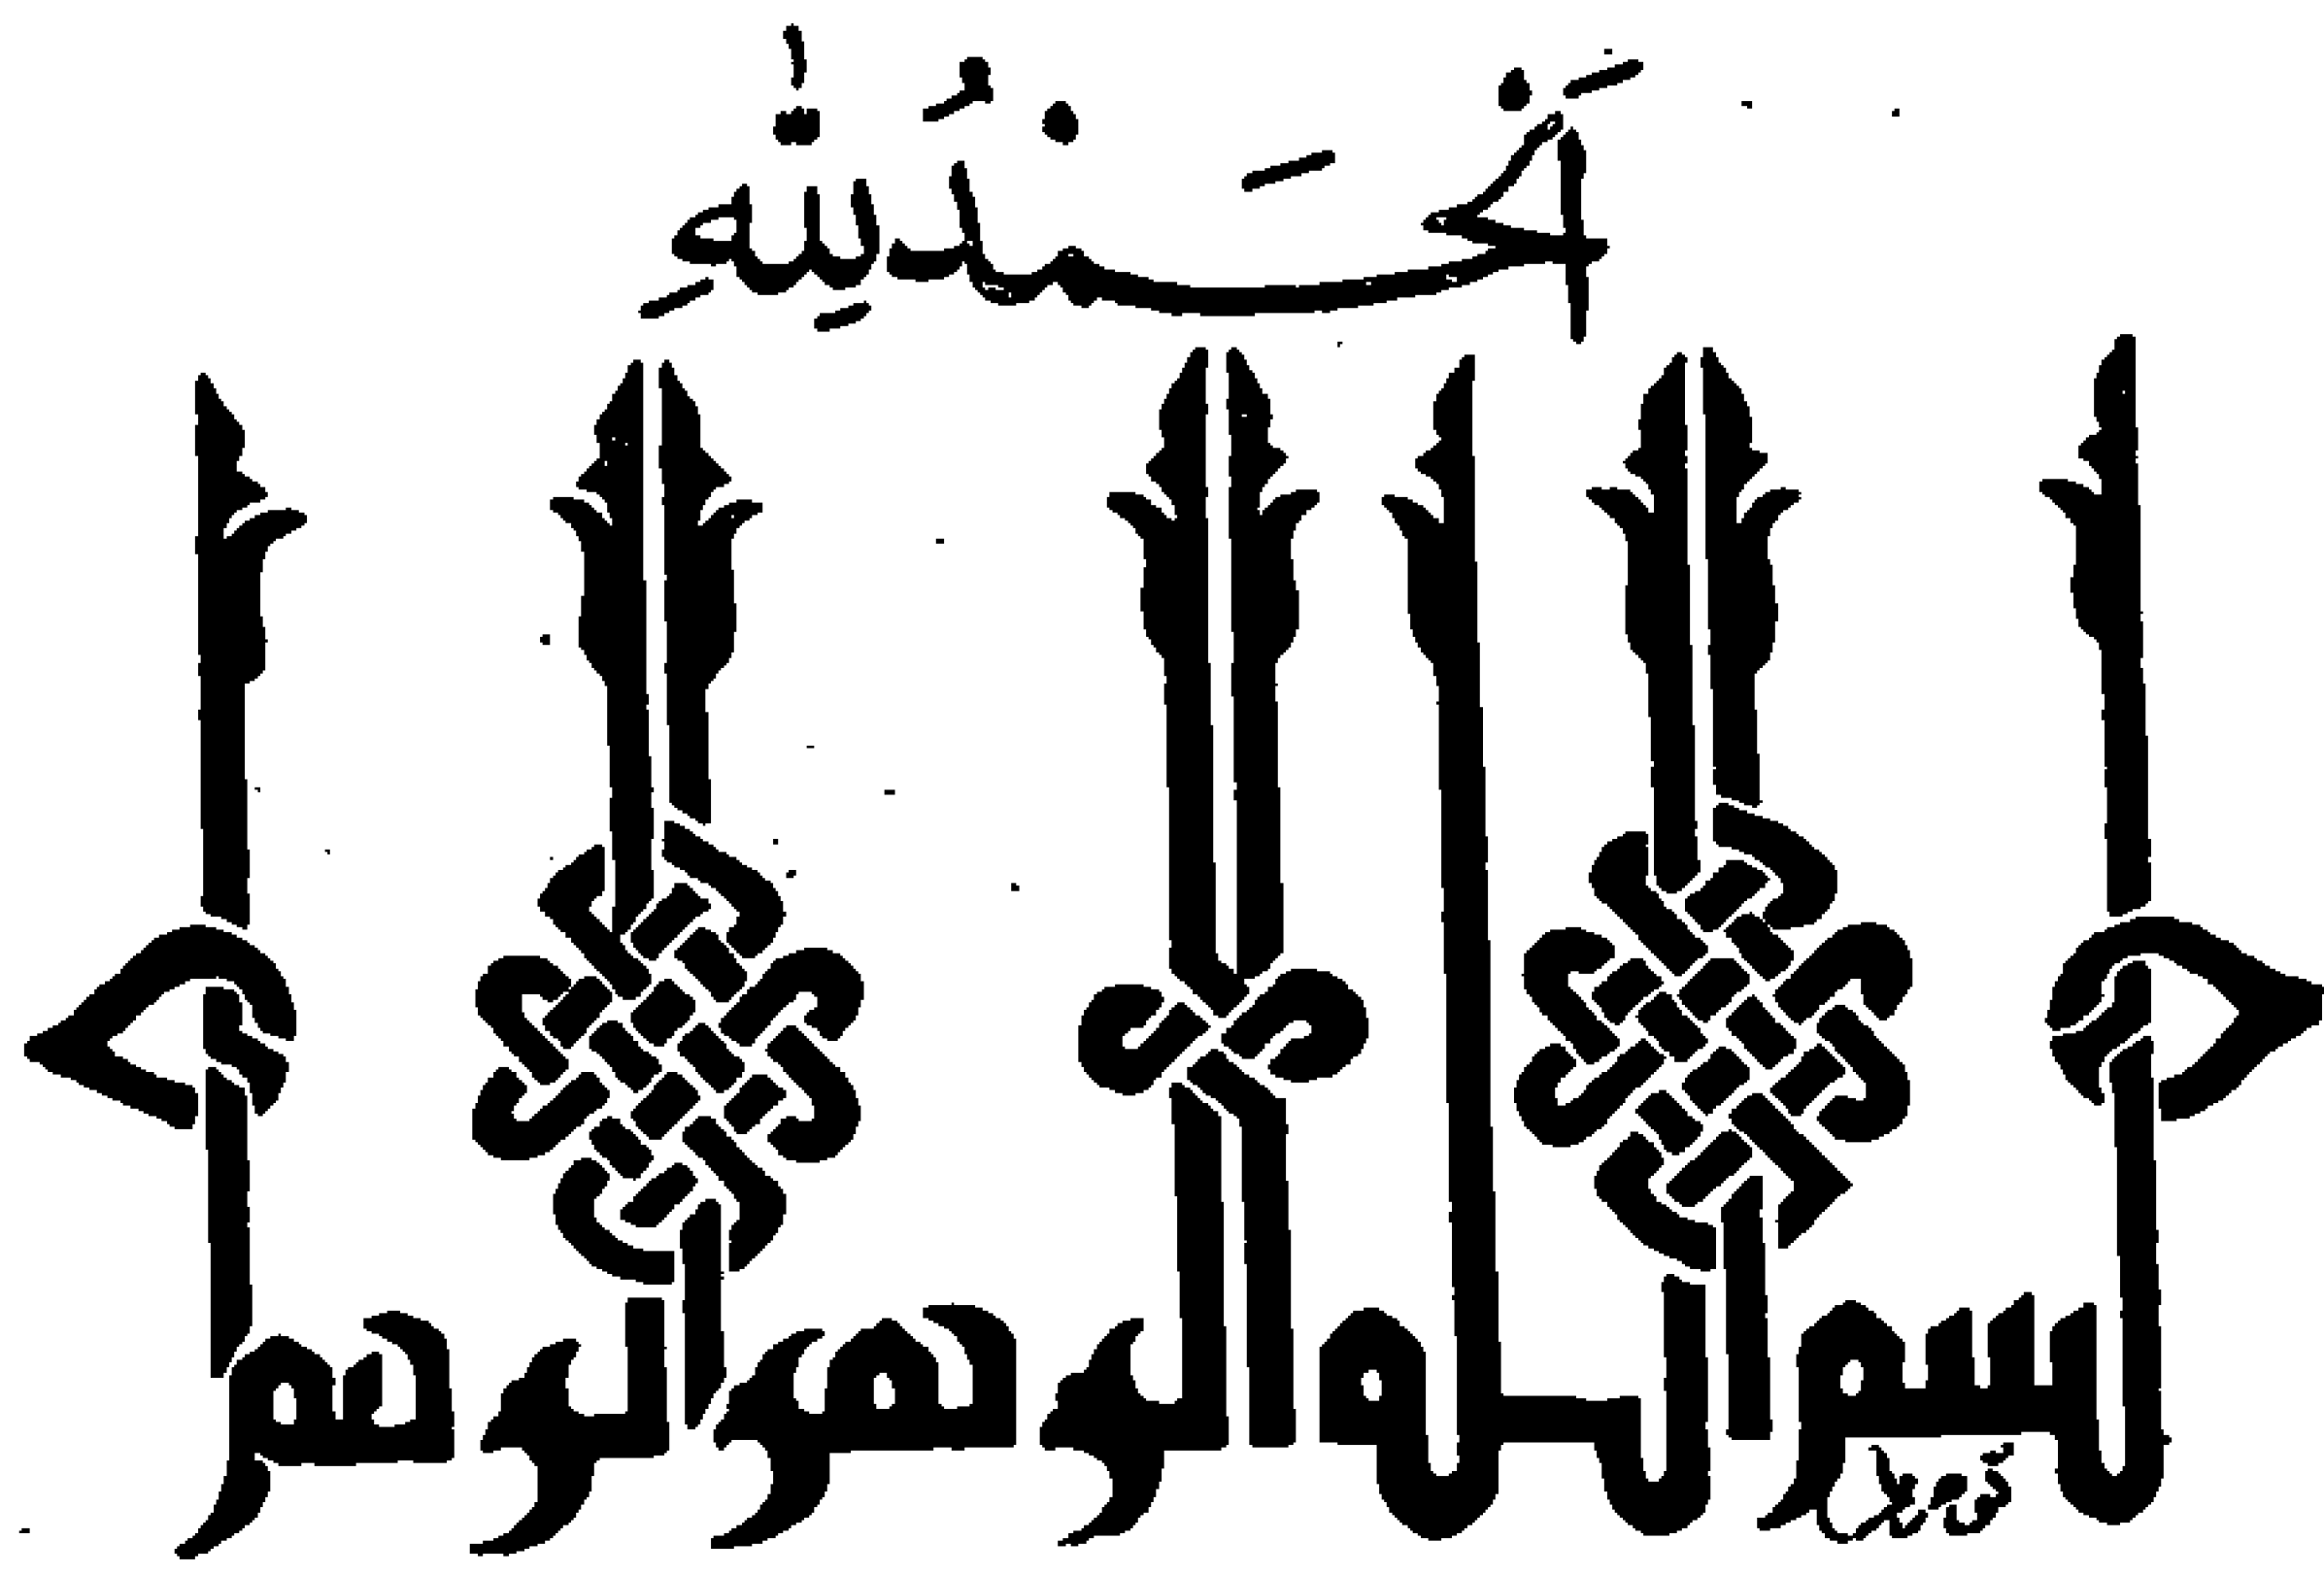 اَلْحَمْدُ لِلّٰهِ
بسم الله الرحمن الرحيم